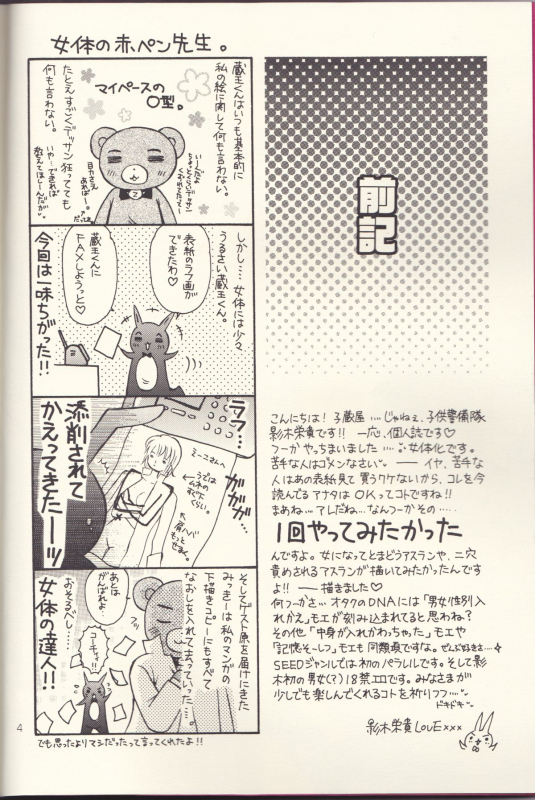 女体の赤ペン先生。
蔵王くんはいつも基本的に
私の絵に関して何も言わない。
マイペースの
O型。
たとえすごくデッサン狂ってても
何も言わない。
しかし……女体には少々
うるさい蔵王くん。
表紙のラフ画が
できたわ♡
蔵王くんに
FAXしようっと♡
今回は一味ちがった!!
ラフ…
ガガガ…
添削されて
かえってきたーッ
えーこさんへ
もっと
せまく。
そしてゲスト原を届けにきた
みっきーは私のマンガの
下描きコピーにもすべて
なおしを入れて去っていった…。
あとは
がんばれよ…
コーチィ!!
おそるべし…
女体の達人!!
でも思ったよりマシだったって言ってくれたよ!!
4
前記
こんにちは!子蔵屋…じゃねぇ、子供警備隊
影木栄貴です!! 一応、個人誌です♡
つーかやっちまいました……女体化です。
苦手な人はゴメンなさい。――イヤ、苦手な
人はあの表紙見て買うワケないから、コレを今
読んでるアナタはOKってコトですね!!
まあね…アレだね…なんつーかその……
1回やってみたかった
んですよ。女になってとまどうアスランや、二穴
責めされるアスランが描いてみたかったんです
よ!! ――描きました♡
何つーかさ…オタクのDNAには「男女性別入
れかえ」モエが刻み込まれてると思わね?
その他「中身が入れかわっちゃった」モエや
「記憶そ〜しつ」モエも同類項ですよね。ぜんぶ好きさ…
SEEDジャンルでは初のパラレルです。そして影
木初の男女(?)18禁エロです。みなさまが
少しでも楽しんでくれるコトを祈りつつ……
ドキドキ
影木栄貴LOVE×××